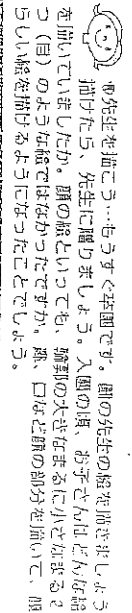 先生を描こう…もうすぐ卒園です。園の先生の絵を描きましょう
描けたら、先生に贈りましょう。入園の頃、お子さんはどんな絵
を描いていましたか。顔の絵といっても、輪郭の大きなまるに小さなまる2
つ(目)のような絵ではなかったですか。鼻、口など顔の部分を描いて、顔
らしい絵を描けるようになったことでしょう。